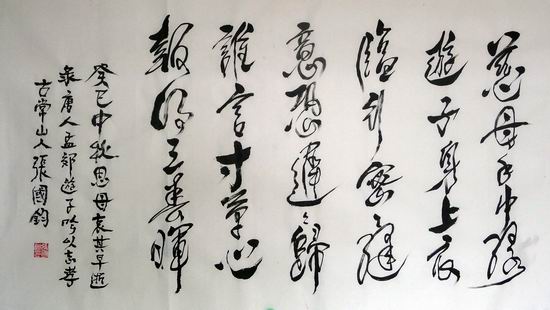 慈母手中线
遊子身上衣
臨行密々縫
意恐遲々歸
誰言寸草心
報得三春暉
癸巳中秋思母哀其早逝
录唐人孟郊遊子吟以志孝
古常山人張國鈞